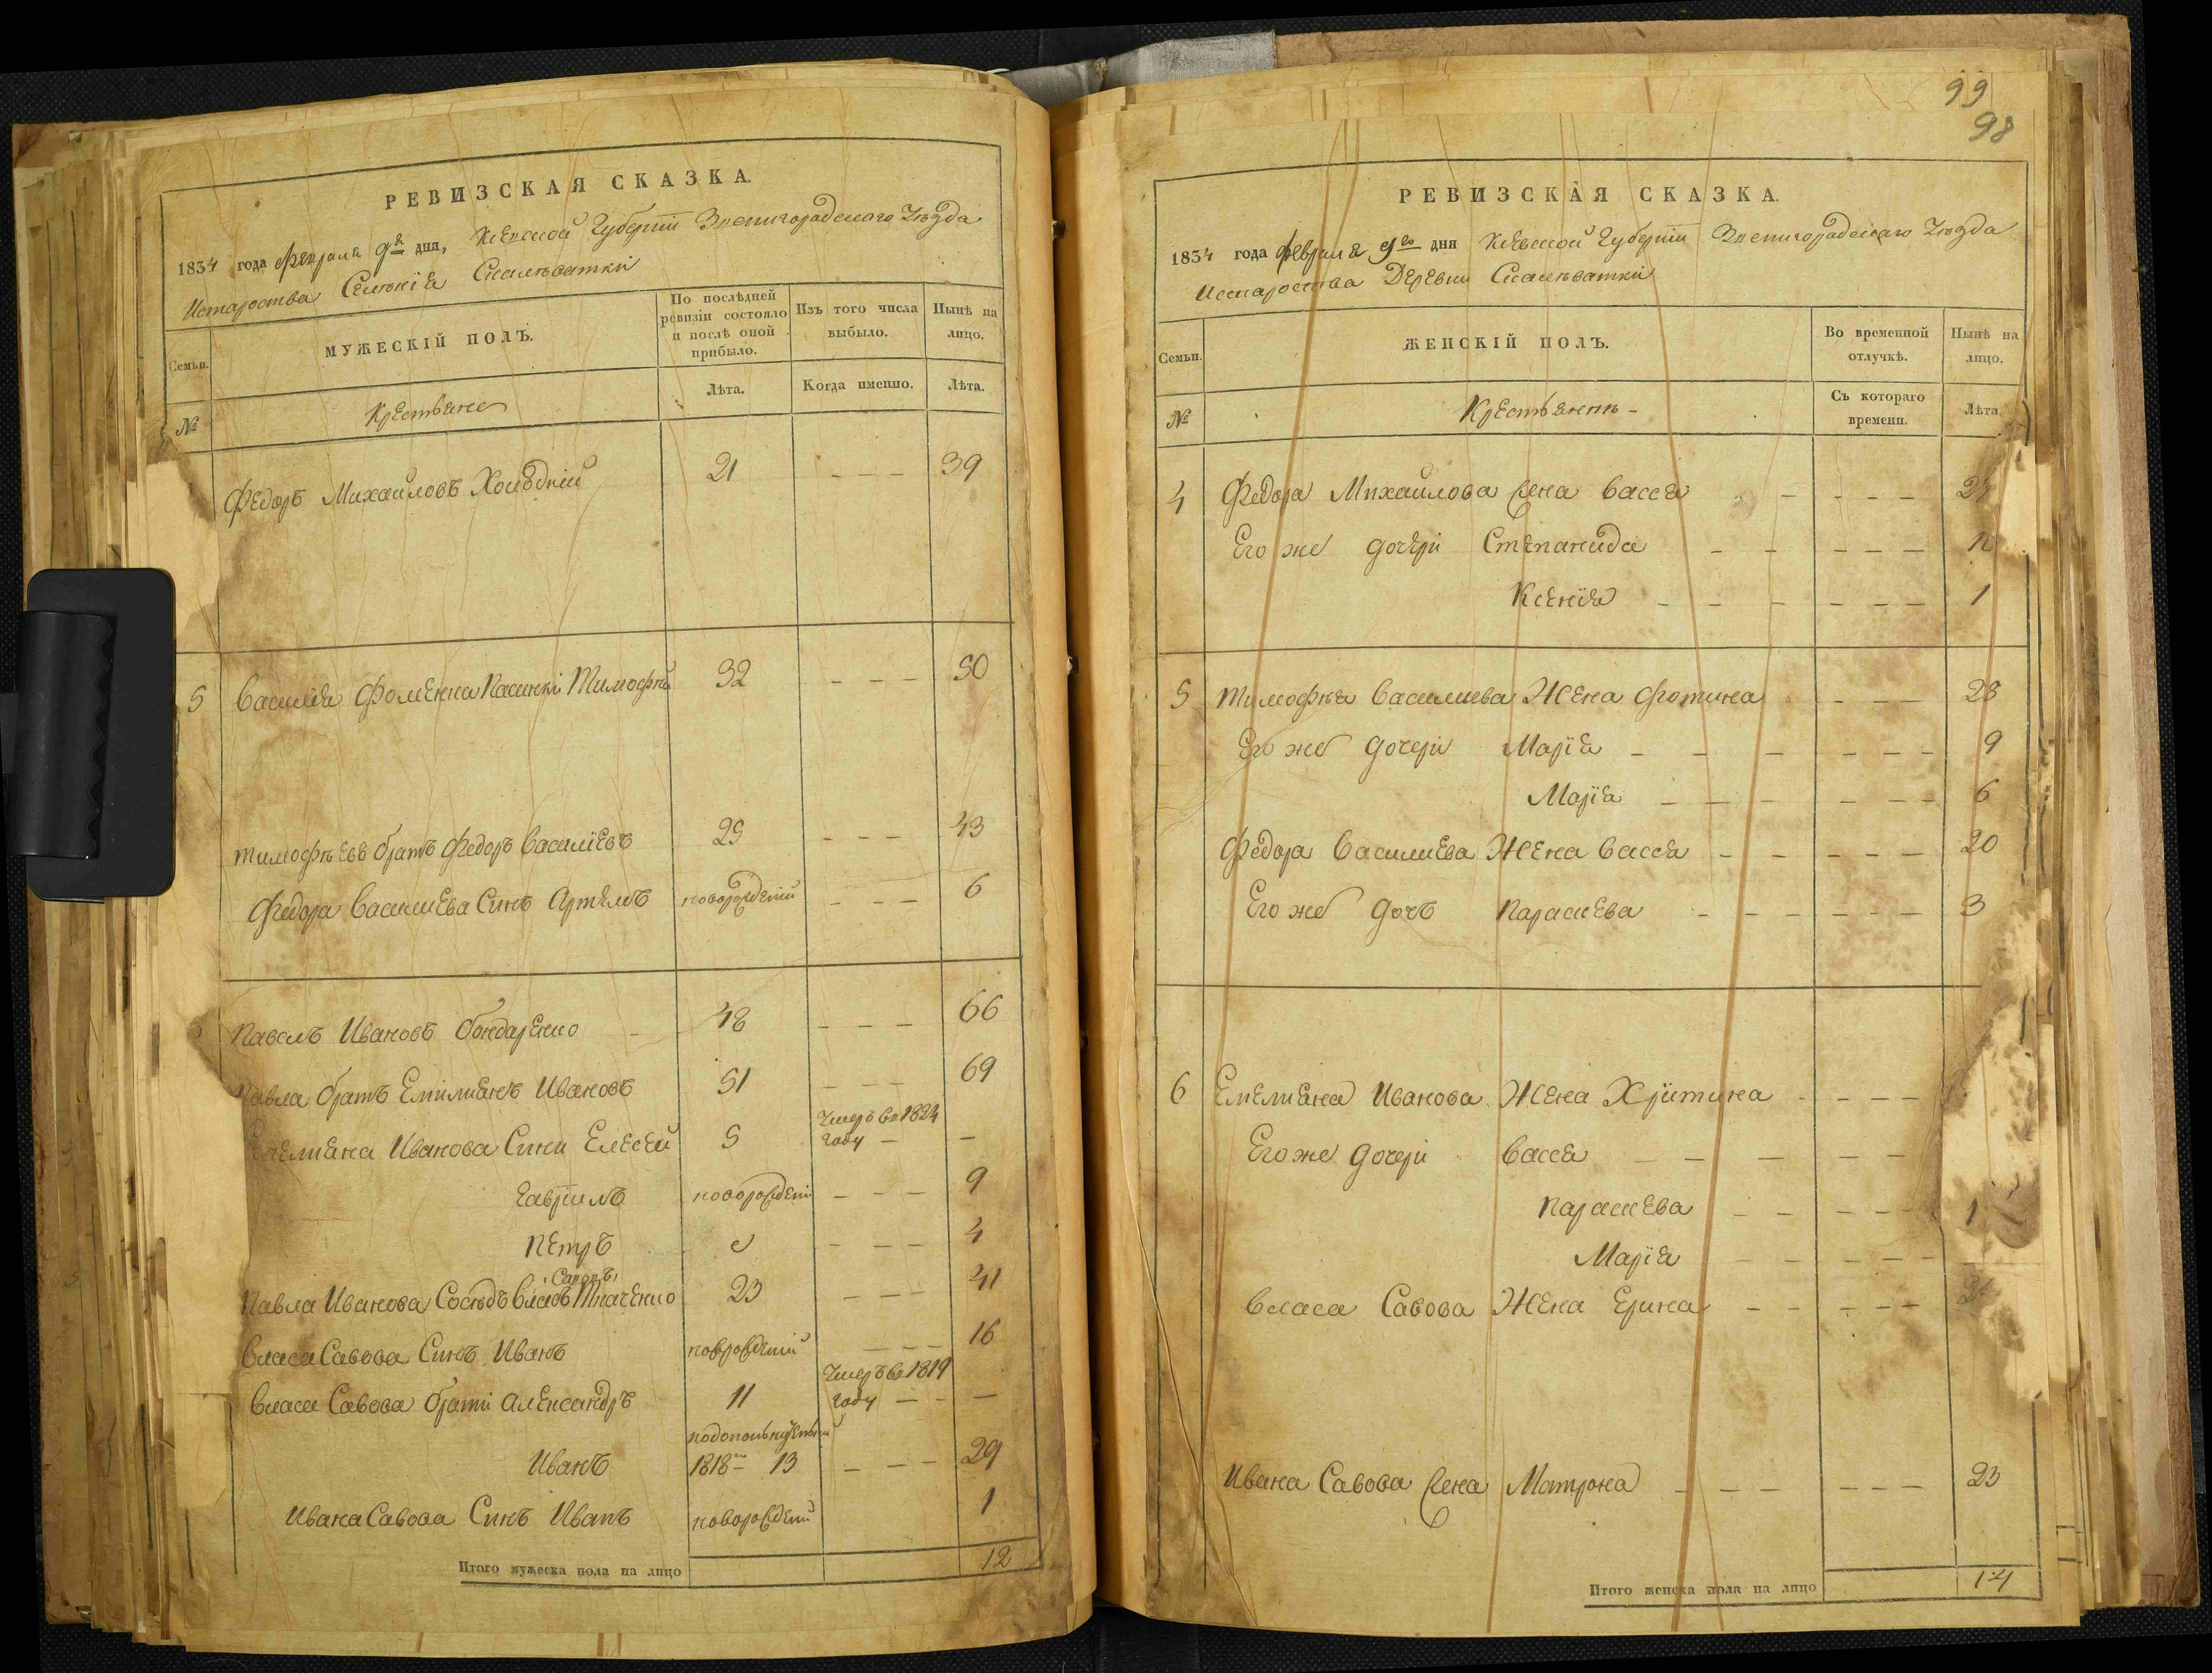 РЕВИЗСКАЯ СКАЗКА.
1834 года Февраля 9го дня, Кіевской Губерніи Звенигородского Уѣзда
Староства Селенія Скалеватки
Семьи.
МУЖЕСКІЙ ПОЛЪ.
По послѣдней ревизіи состояло и послѣ оной прибыло.
Изъ того числа выбыло.
Нынѣ на лицо.
№
Крестьяне
Лѣта.
Когда именно.
Лѣта.
Федоръ Михайловъ 21 - - - 39
5 Василія Фоменка Пасинки Тимофей 32 - - - 50
Тимофѣевъ братъ Федоръ Василіевъ 25 - - - 43
Федора Василиева Синъ Артемъ новорожденій - - - 6
Павелъ Ивановъ Бондаренко - 48 - - - 66
Павла братъ Емилианъ Ивановъ 51 - - - 69
Емелиана Иванова Сини Елесей 5 Умеръ въ 1824 году - -
Гавріилъ новорожденій - - - 9
Петръ - - - 4
Савовъ
Павла Иванова Сосѣдъ Власъ Ткаченко 23 - - - 41
Власа Савова Синъ Иванъ новорожденій - - - 16
Власа Савова брати Александръ 11 Умеръ въ 1819 году - - -
Иванъ 1818 13 - - - 29
Ивана Савова Синъ Иванъ новорожденій 1
Итого мужеска пола на лицо 12
99
98
РЕВИЗСКАЯ СКАЗКА.
1834 года Февраля 9го дня Кіевской Губерніи Звенигородского Уѣзда
Староства Деревни Скалеватки
Семьи.
ЖЕНСКІЙ ПОЛЪ.
Во временной отлучкѣ.
Нынѣ на лицо.
№
Крестьянъ -
Съ котораго времени.
Лѣта.
4 Федора Михайлова жена Васса - - - - -
Его же дочери Степанида - - - - -
Ксенія - - - - - - 1
5 Тимофѣя Василиева Жена Фотина - - - 28
Его же дочери Марія - - - - - - 9
Марія - - - - - - 6
Федора Василиева Жена Васса - - - - - 20
Его же дочь Параскева - - - - - - 3
6 Емелиана Иванова Жена Христина - - - -
Его же дочери Васса - - - - -
Параскева - - - - -
Марія - - - - -
Власа Савова Жена Ерина - - - - -
Ивана Савова жена Матрона - - - - - - 23
Итого женска пола на лицо 14